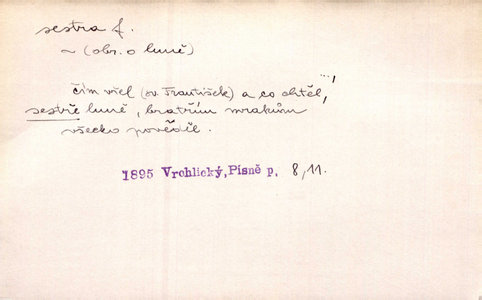 sestra f.
~ (obr. o luně)
...,
čím všel (sv. František) a co chtěl,
sestře luně, bratřím mrakům
všecko pověděl.
1895 Vrchlický, Písně p. 8, 11.